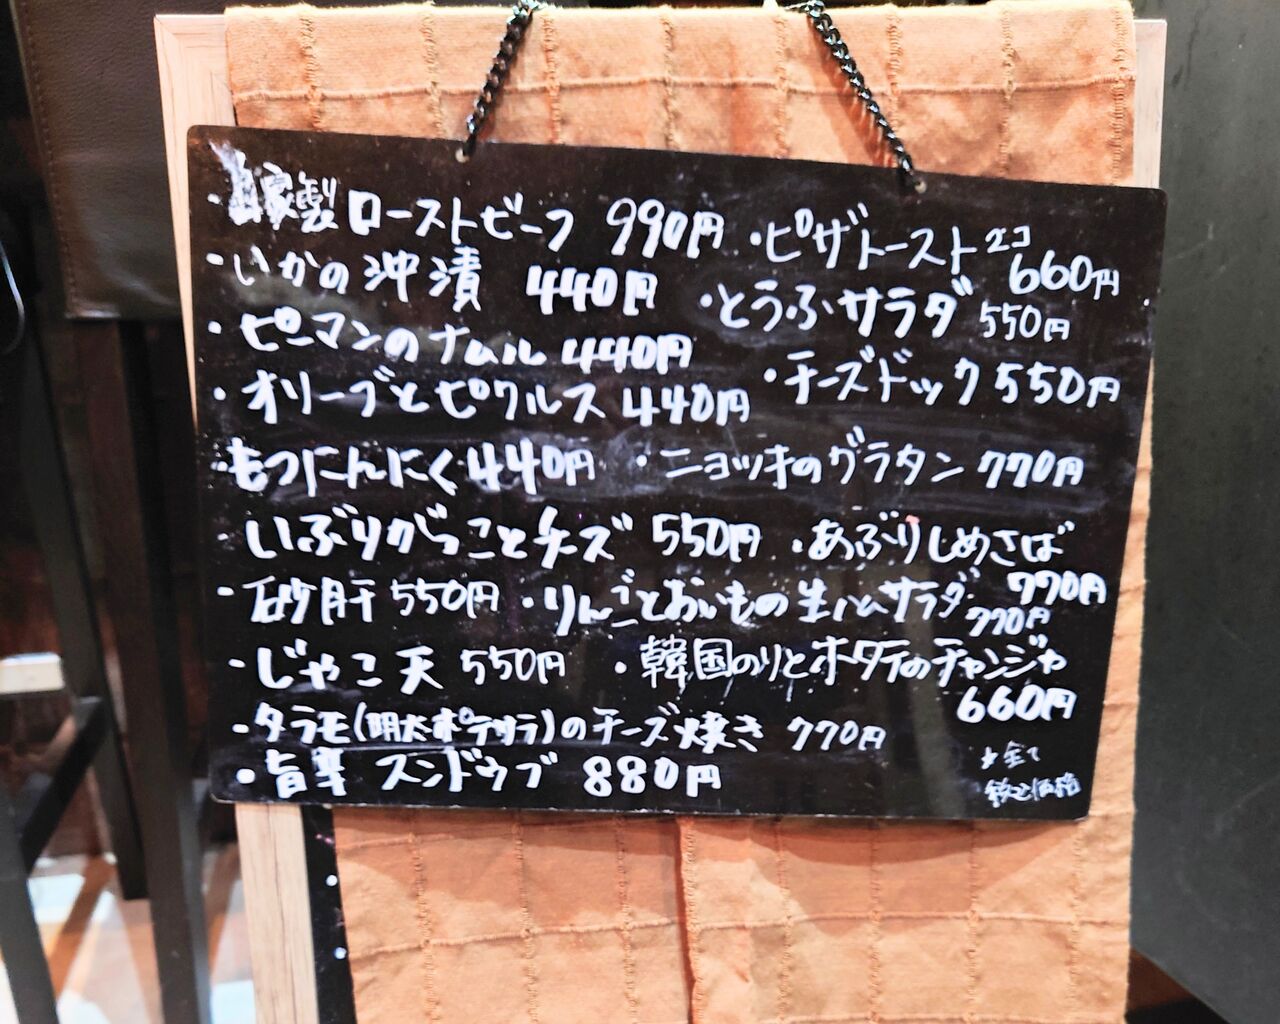 ・自家製ローストビーフ 990円
・いかの沖漬 440円
・ピーマンのナムル 440円
・オリーブとピクルス 440円
・もつにんにく 440円
・いぶりがっことチーズ 550円
・砂肝 550円
・じゃこ天 550円
・タラモ(明太ポテサラ)のチーズ焼き 770円
・旨辛 スンドゥブ 880円
・ピザトースト 2コ
660円
・とうふサラダ 550円
・チーズドック 550円
・ニョッキのグラタン 770円
・あぶりしめさば
770円
・りんごとおいもの生ハムサラダ
770円
・韓国のりとホタテのチャンジャ
660円
★全て
税込価格